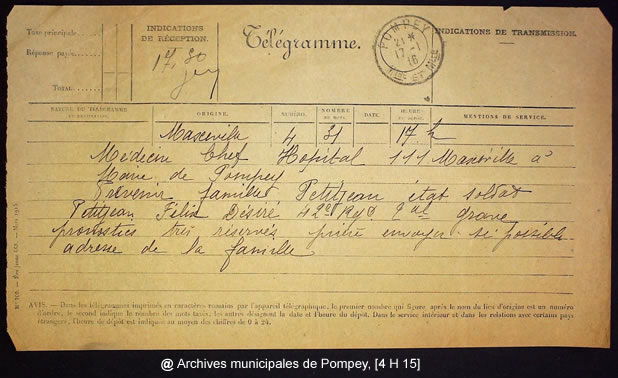 Taxe principale.
Réponse payée.
TOTAL.
INDICATIONS
DE RÉCEPTION.
17 30
Télégramme.
POMPEY
21 *
17 - 1
16
INDICATIONS DE TRANSMISSION.
ORIGINE.
NUMÉRO.
NOMBRE
DE MOTS.
DATE.
HEURE
DE DÉPÔT.
MENTIONS DE SERVICE.
Maxéville 4 31 17 h
Médecin Chef Hôpital 111 Maxéville à
Maire de Pompey
Prévenir famille Petitjean état soldat
Petitjean Félix Désiré 42e grave
pronostics très réservés prière envoyer si possible
adresse de la famille
AVIS. — Dans les télégrammes imprimés en caractères romains par l'appareil télégraphique, le premier nombre qui figure après le nom du lieu d'origine est un numéro
d'ordre, le second indique le nombre des mots taxés, les autres désignent la date et l'heure du dépôt. Dans le service intérieur et dans les relations avec certains pays
étrangers, l'heure de dépôt est indiquée au moyen des chiffres de 0 à 24.
@ Archives municipales de Pompey, [4 H 15]